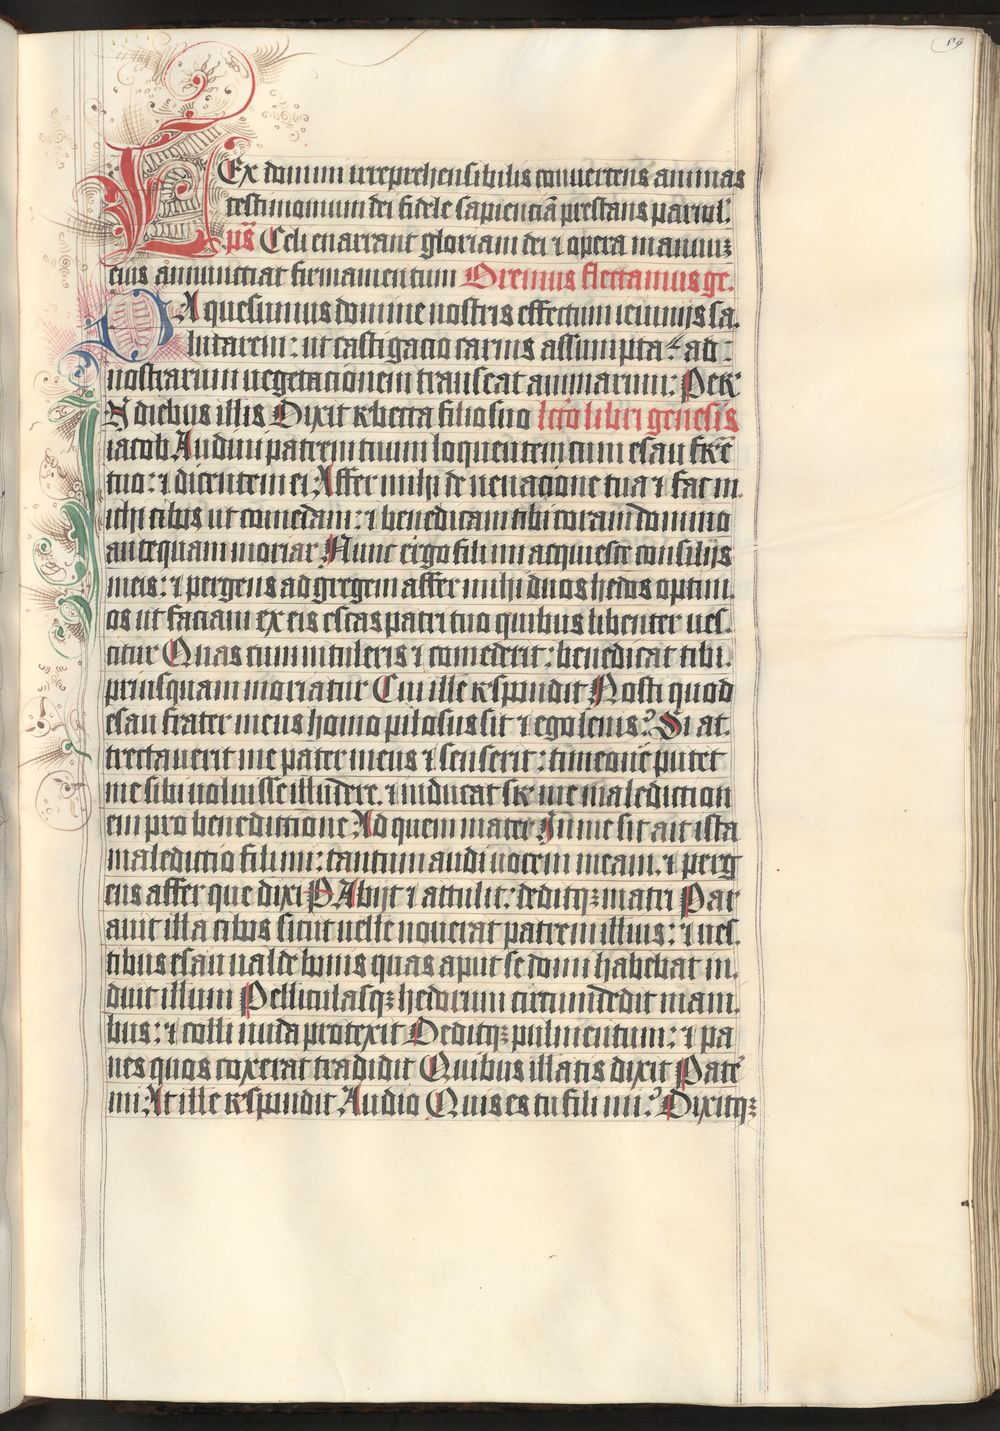 59
LEx domini irreprehensibilis conuertens animas
testimonium dei fidele sapienciā prestans paruul'.
ps̄ Celi enarrant gloriam dei ⁊ opera manuuꝫ
eius annunctiat firmamentum Oremus flectamus ge.
DA quesumus domine nostris effectum ieiunijs sa.
lutarem: ut castigacio carnis assumpta: ad:
nostrarum uegetacionem transeat animarum: Per
IN diebus illis Dixit rebecca filio suo lcō libri genesis
iacob Audiui patrem tuum loquentem cum esau fr̄e
tuo: ⁊ dicentem ei Affer mihi de uenacione tua ⁊ fac m
ichi cibos ut comedam: ⁊ benedicam tibi coram domino
antequam moriar Nunc ergo fili mi acquiesce consilijs
meis: ⁊ pergens ad gregem affer mihi duos hedos optim.
os ut faciam ex eis escas patri tuo quibus libenter ues.
citur Quas cum intuleris ⁊ comederit: benedicat tibi.
priusquam moriatur Cui ille respondit Nosti quod
esau frater meus homo pilosus sit ⁊ ego lenis? Si at.
trectauerit me pater meus ⁊ senserit: timeo nē putet
me sibi uoluisse illudere. ⁊ inducat super me malediction
em pro benedictione Ad quem mater In me sit ait ista
maledictio fili mi: tantum audi uocem meam. ⁊ perg
ens affer que dixi P Abijt ⁊ attulit: deditqꝫ matri Par
auit illa cibos sicut uelle nouerat patrem illius: ⁊ ues.
tibus esau ualde bonis quas aput se domi habebat in.
duit illum Pelliculasqꝫ hedorum circumdedit mani.
bus: ⁊ colli nuda protexit Deditqꝫ pulmentum: ⁊ pa
nes quos coxerat tradidit Quibus illatis dixit Pate'
mi At ille respondit Audio Quis es tu fili mi? Dixitqꝫ